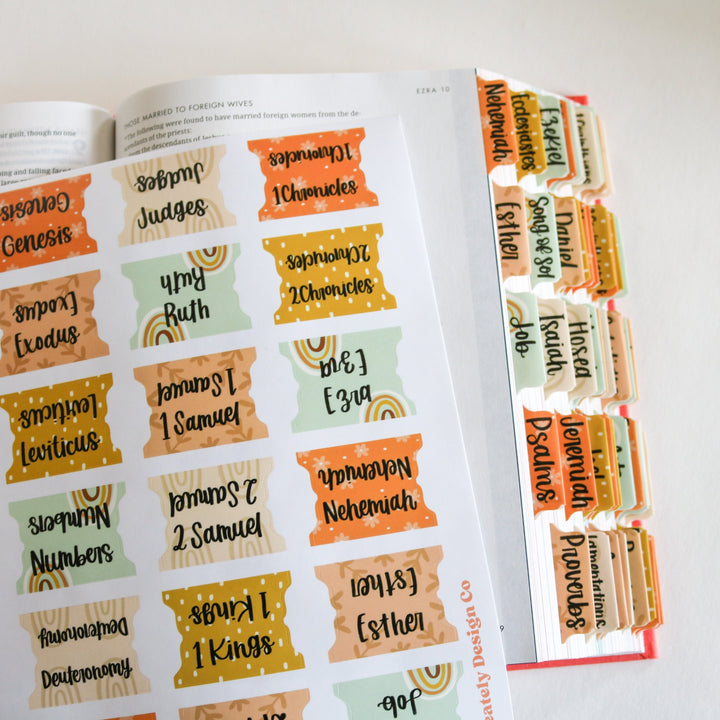 THOSE MARRIED TO FOREIGN WIVES
EZRA 10
The following were found to have married foreign women from the de-
endants of the priests:
from the descendants of
ur guilt, though no one
Genesis
Genesis
Judges
Judges
1 Chronicles
1 Chronicles
Exodus
Exodus
Ruth
Ruth
2 Chronicles
2 Chronicles
Leviticus
Leviticus
1 Samuel
1 Samuel
Ezra
Ezra
Numbers
Numbers
2 Samuel
2 Samuel
Nehemiah
Nehemiah
Deuteronomy
Deuteronomy
1 Kings
1 Kings
Esther
Esther
Job
eately Design Co
Nehemiah
Ecclesiastes
Ezekiel
Esther
Song of Sol
Daniel
Job
Isaiah
Hosea
Psalms
Jeremiah
Joel
Proverbs
Lamentations